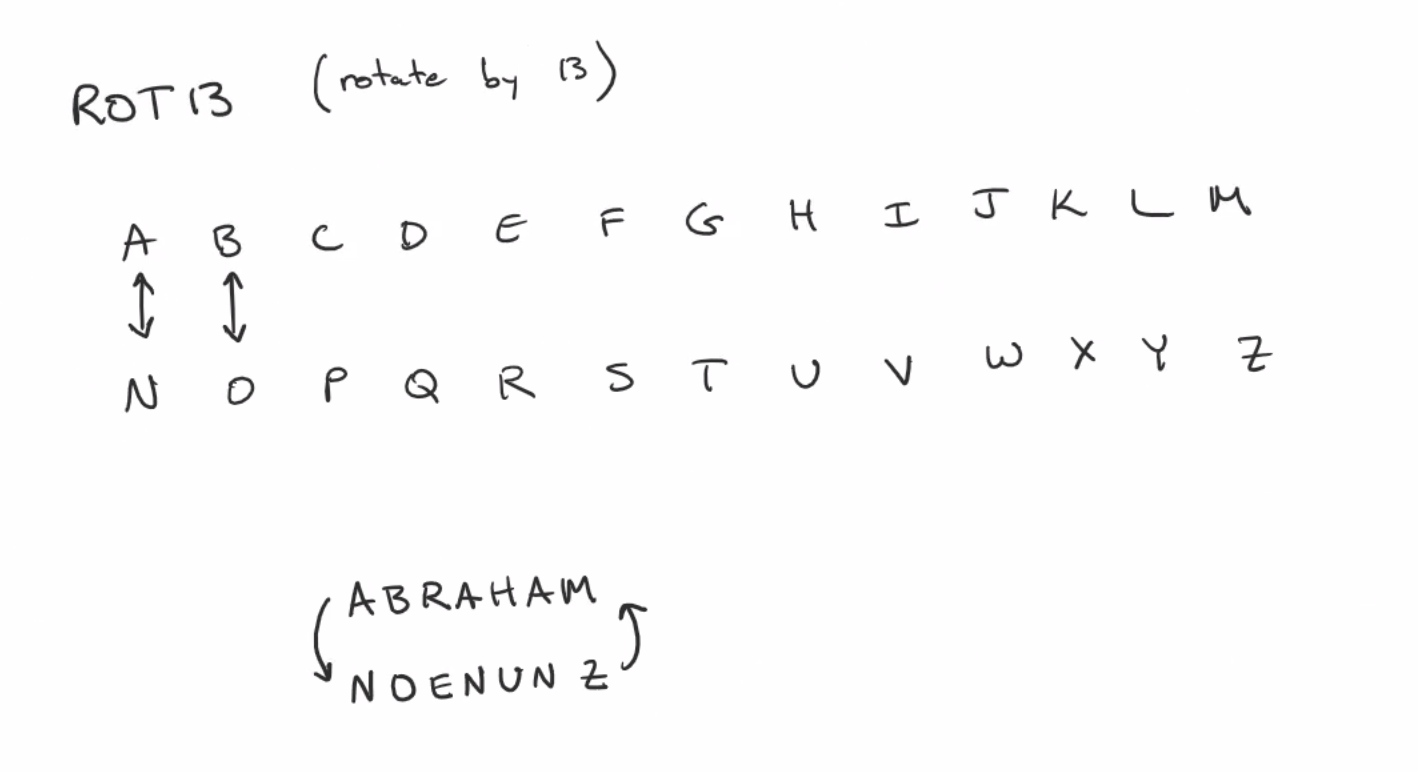 ROT13 (rotate by 13)
A B C D E F G H I J K L M
N O P Q R S T U V W X Y Z
ABRAHAM
NOENUNZ